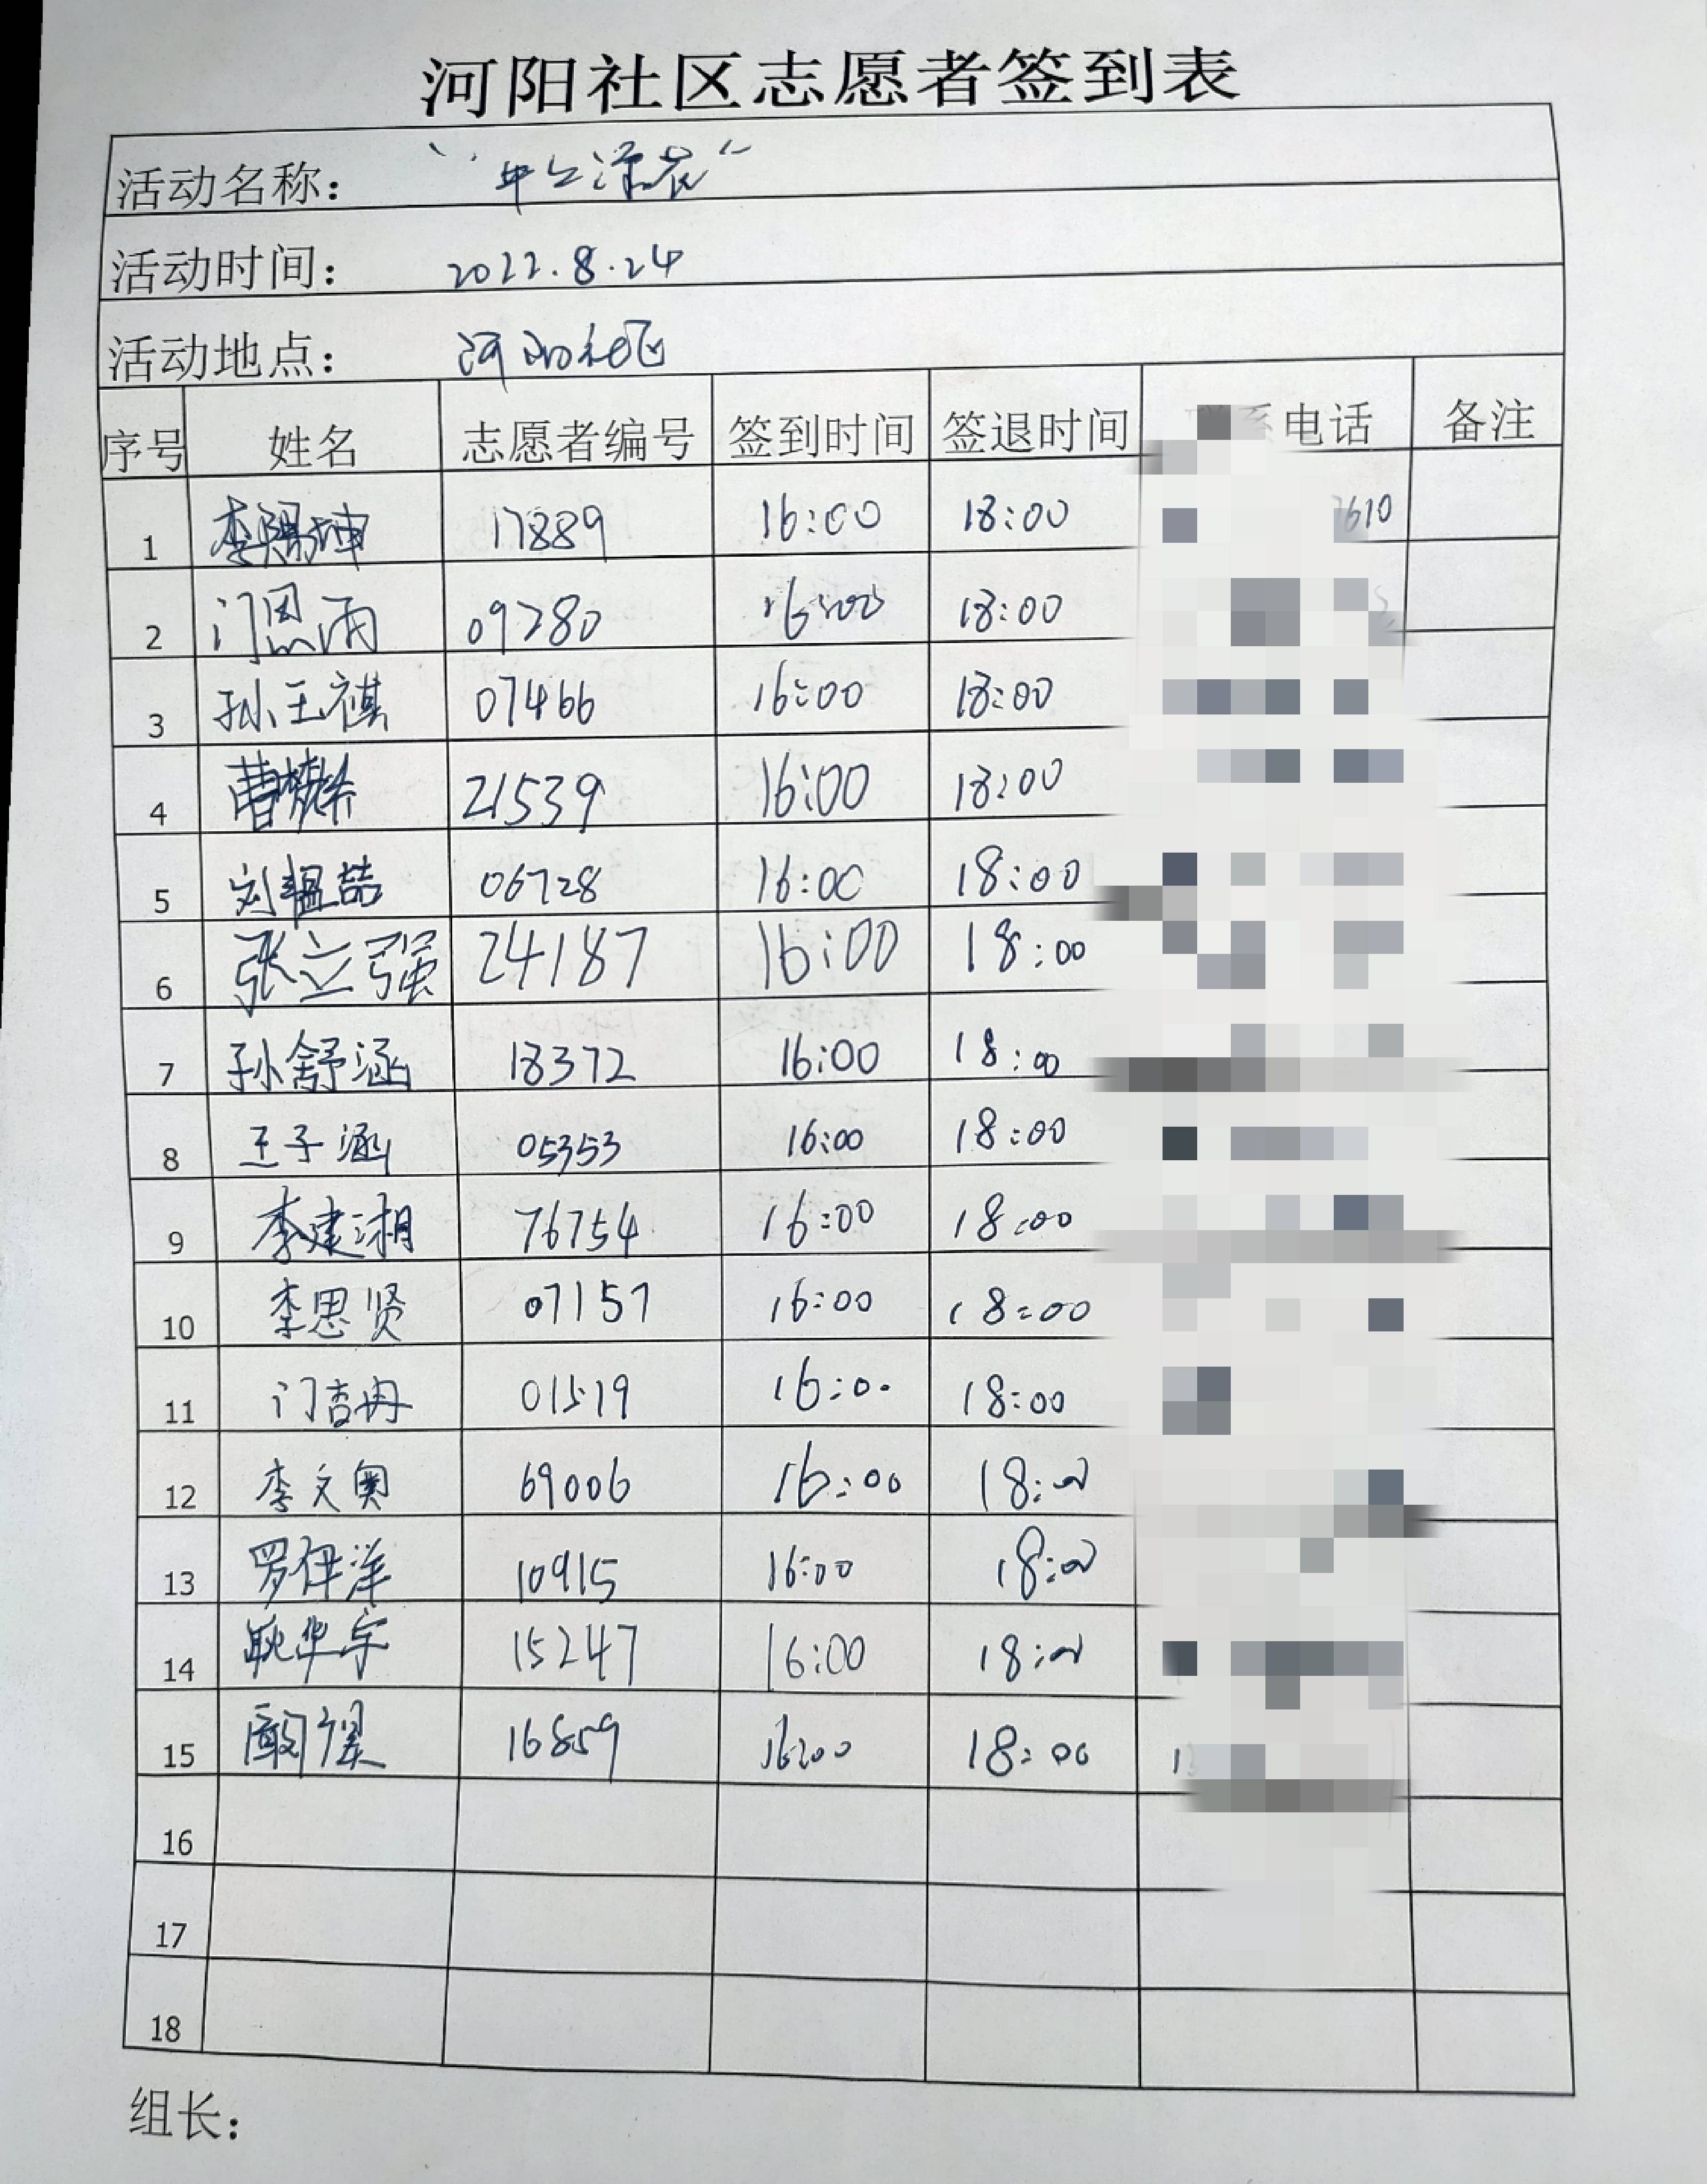 河阳社区志愿者签到表
活动名称：
活动时间： 2022.8.24
活动地点： 河阳社区
序号 姓名 志愿者编号 签到时间 签退时间 系电话 备注
1 李赐坤 17889 16:00 18:00 7610
2 门恩雨 09280 16:00 18:00
3 孙玉祺 07466 16:00 18:00
4 曹 21539 16:00 18:00
5 刘韫喆 06728 16:00 18:00
6 张立强 24187 16:00 18:00
7 孙舒涵 18372 16:00 18:00
8 王子涵 05353 16:00 18:00
9 李建湘 76754 16:00 18:00
10 李思贤 07157 16:00 18:00
11 门杏冉 01519 16:00 18:00
12 李文奥 69006 16:00 18:00
13 罗伊洋 10915 16:00 18:00
14 耿华宇 15247 16:00 18:00
15 16859 16:00 18:00
16
17
18
组长：